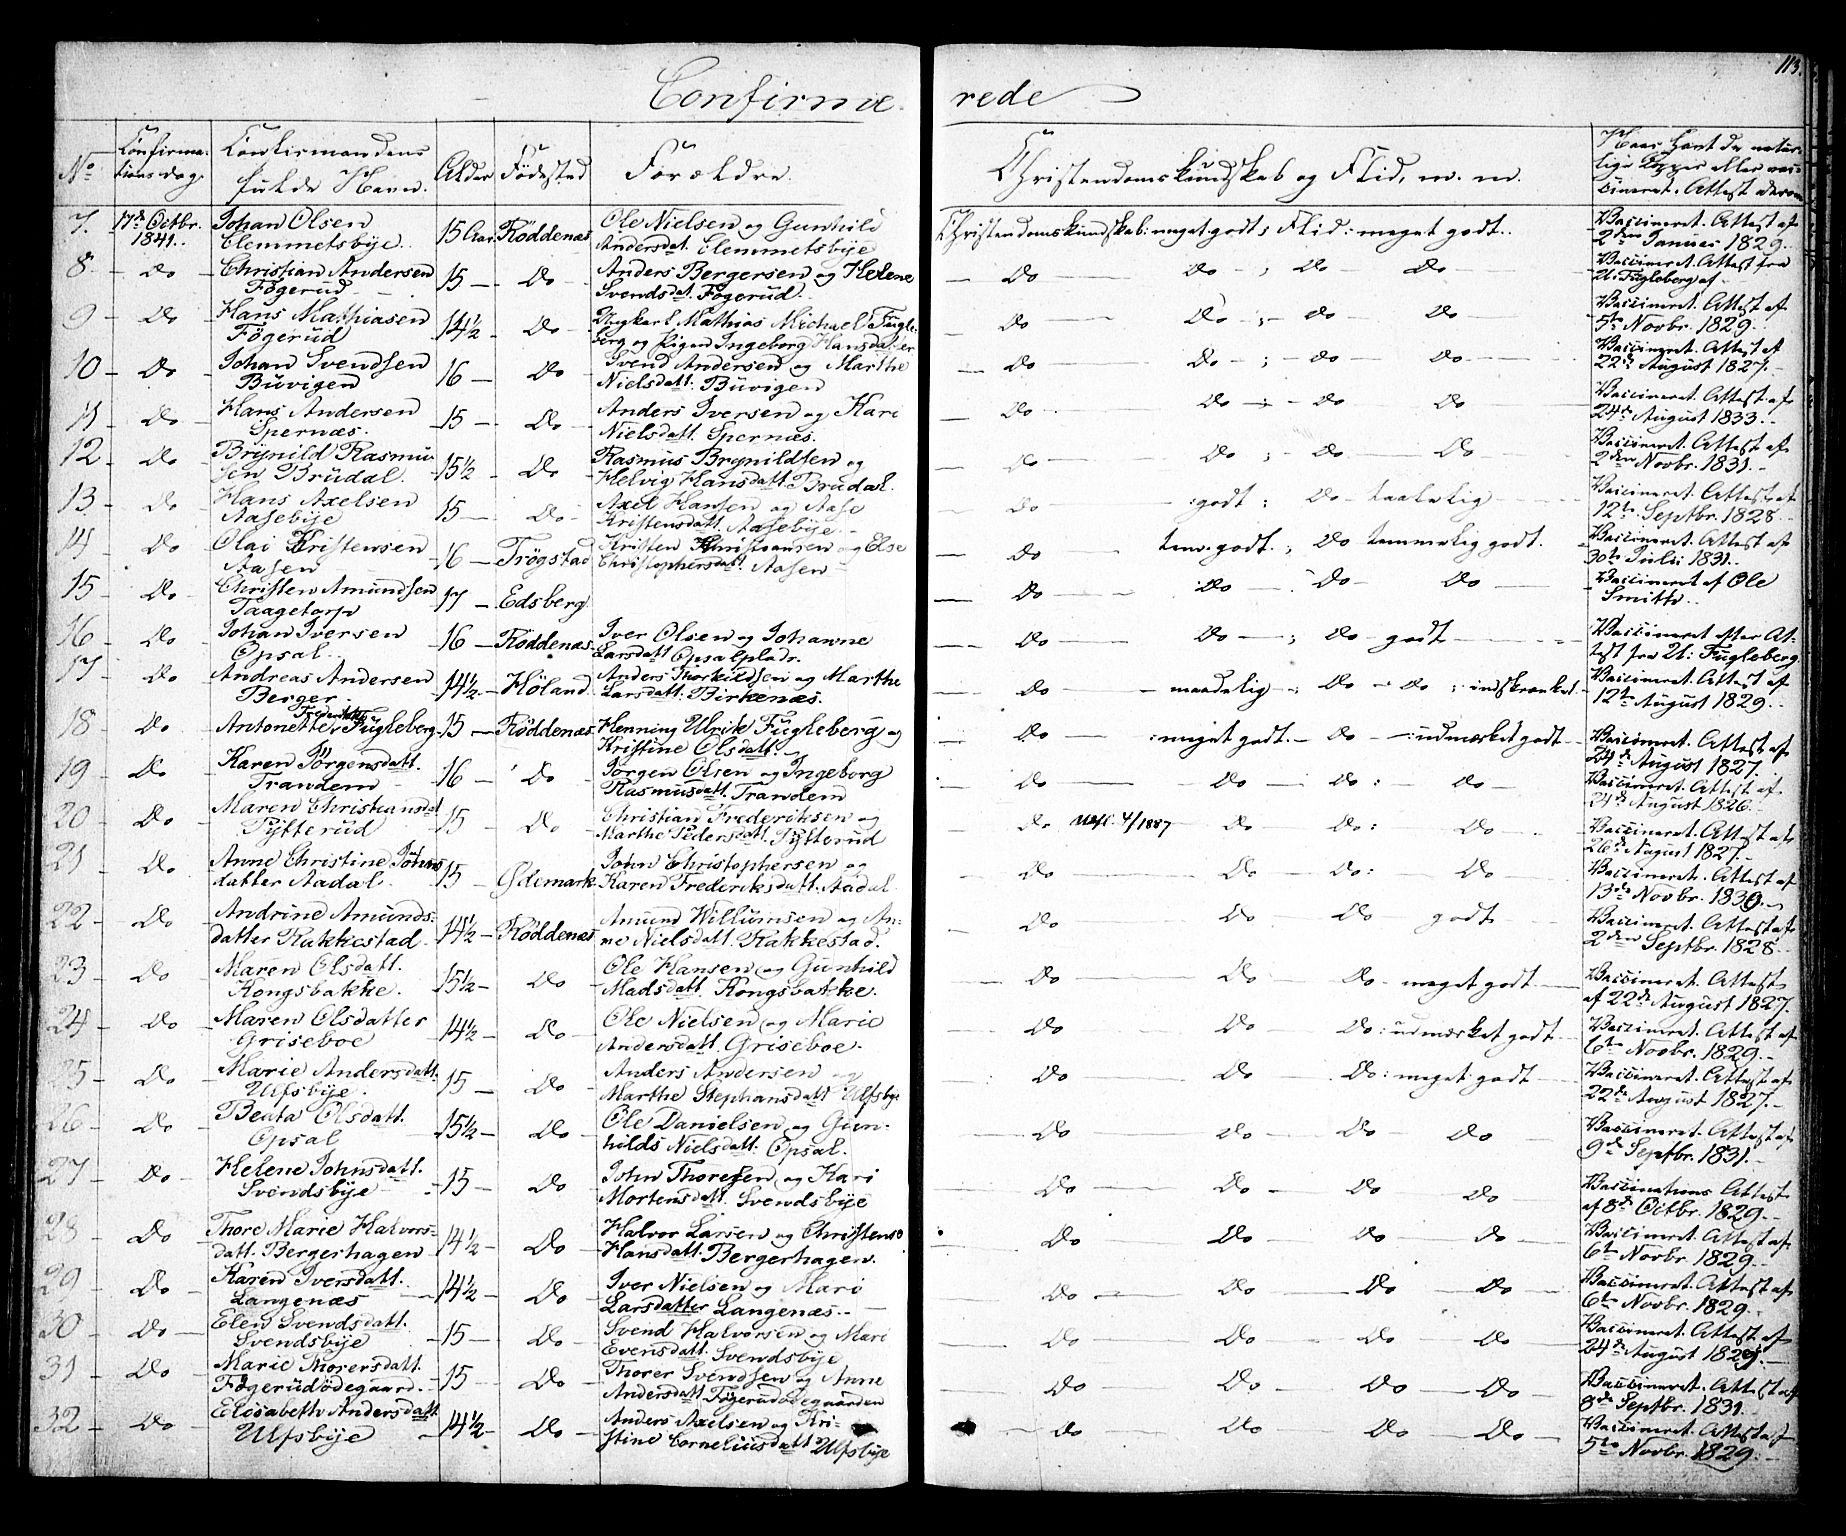 113.
Confirme-rede
No
Confirma-
tions dag.
Confirmandens
fulde Navn.
Alder
Födested
Forældre.
Christendomskundskab og Flid, m. m.
Naar havt de natur-
lige Kopper eller vac-
cineret. Attest derom
7. 17de Octbr. Johan Olsen 15 Aar. Röddenæs Ole Nielsen og Gunhild Christendomskundskab: meget godt; Flid: meget godt. Vaccineret. Attest af
1841. Clemmetsbye. Andersdat. Clemmetsbye 2den Januar 1829.
8 - do Christian Andersen 15 - do - Anders Bergersen og Helene do do ; do do Vaccineret. Attest fra
Fögerud Svendsdat. Fögerud. U: Fugleberg af
9 - do Hans Mathiasen 14½ - do - Ungkarl Mathias Michael Fugle- do do ; do do Vaccineret. Attest af
Fögerud berg og Pigen Ingeborg Hansdatter 5te Novbr. 1829.
10 - do Johan Svendsen 16 - do Svend Andersen og Marthe do do ; do do Vaccineret. Attest af
Buvigen Nielsdatt. Buvigen 22de August 1827.
11 - do Hans Andersen 15 - do - Anders Iversen og Kari do do ; do do Vaccineret. Attest af
Spernæs. Nielsdatt. Spernæs. 24de August 1833.
12 do Brynild Rasmu- 15½ - do Rasmus Brynildsen og do do ; do do Vaccineret. Attest af
sen Brudal. Helvig Hansdatt. Brudal. 2den Novbr. 1831.
13 - do Hans Axelsen 15 - do - Axel Hansen og Aase do godt ; do taalelig Vaccineret. Attest af
Aasebye Kristensdatt. Aasebye. 12te Septbr. 1828.
14 do Olai Kristensen 16 - Trögstad Kristen Christiansen og Else do tem. godt. ; do temmelig godt. Vaccineret. Attest af
Aasen Christophersdat. Aasen 30te Juli 1831.
15 - do Christen Amundsen 17 - Edsberg do do do do Vaccineret af Ole
Taagetorp Smitt.
16 - do Johan Iversen 16 - Röddenæs Iver Olsen og Johanne do do ; do godt Vaccineret efter At-
Opsal. Larsdatt Opsalplads. test fra U: Fugleberg
17 - do Andreas Andersen 14½ - Höland. Anders Thorkildsen og Marthe do maadelig ; do do ; indskrænket. Vaccineret. Attest af
Berger. Larsdatt. Birkenæs. 12te August 1829.
18 - do Antonette Frederikke Fugleberg 15 - Röddenæs Henning Ulrik Fugleberg og do meget godt. do udmærket godt Vaccineret. Attest af
Kristine Olsdatt. 24de August 1827.
19 - do Karen Jörgensdatt. 16 - do Jörgen Olsen og Ingeborg do do do: do Vaccineret. Attest af
Trandem Rasmusdatt. Trandem 24de August 1826.
20 - do Maren Christiansdat 15 - do Christian Frederiksen og do 4/1887 do do: do Vaccineret. Attest af
Tytterud Marthe Pedersdatt. Tytterud 26de August 1827.
21 do Anne Christine Johns 15 - Ødemark John Christophersen og do do do: do Vaccineret. Attest af
datter Aadal. Karen Frederiksdatt. Aadal. 13de Novbr. 1830.
22 - do Andrine Amunds- 14½ - Röddenæs Amund Willumsen og An- do do do godt Vaccineret. Attest af
datter Rakkestad ne Nielsdatt. Rakkestad. 2den Septbr. 1828.
23 do Maren Olsdatt. 15½ - do Ole Hansen og Gunhild do do do meget godt Vaccineret. Attest
Kongsbakke. Madsdatt. Kongsbakke. af 22de August 1827.
24 - do Maren Olsdatter 14½ - do Ole Nielsen og Marie do do do: udmærket godt Vaccineret. Attest af
Griseboe Andersdatt. Griseboe. 6te Novbr. 1829.
25 do Marie Andersdatt. 15 - do Anders Andersen og do do do: meget godt Vaccineret. Attest af
Ulfsbye. Marthe Stephansdatt Ulfsbye 22de August 1827.
26 - do Beata Olsdatt. 15½ - do Ole Danielsen og Gun- do do do do Vaccineret. Attest af
Opsal hilds Nielsdatt. Opsal. 9de Septbr. 1831.
27 - do Helene Johnsdatt. 15 - do John Thoresen og Kari do do do do Vaccinations Attest
Svendsbye Mortensdatt. Svendsbye af 8de Octbr. 1829.
28 do Thore Marie Halvors- 14½ - do Halvor Larsen og Christense do do do do Vaccineret. Attest af
datt. Bergerhagen Hansdatt. Bergerhagen. 6te Novbr. 1829.
29 - do Karen Iversdatt. 14½ - do Iver Nielsen og Mari do do do do Vaccineret. Attest af
Langenæs Larsdatter Langenæs. 6te Novbr. 1829.
30 - do Elen Svendsdatt. 15 - do Svend Halvorsen og Mari do do do do Vaccineret. Attest af
Svendsbye Evensdatt. Svendsbye 24de August 1829.
31 - do Marie Thorersdatt. 15 - do Thorer Svendsen og Anne do do do do Vaccineret. Attest af
Fögerudödegaard. Andersdatt. Fögerudödegaarden 8de Septbr. 1831.
32 - do Elisabeth Andersdatt 14½ - do Anders Axelsen og Kri- do do do do Vaccineret. Attest af
Ulfsbye stine Corneliusdatt Ulfsbye 5te Novbr. 1829.